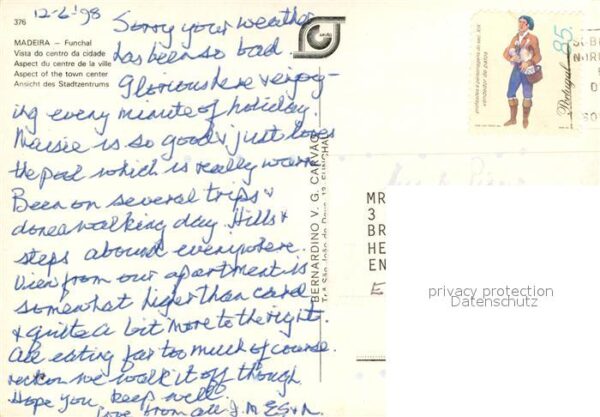 12-6-'98
376
MADEIRA – Funchal
Vista do centro da cidade
Aspect du centre de la ville
Aspect of the town center
Ansicht des Stadtzentrums
Sorry your weather
has been so bad.
Glorious here & enjoy-
ing every minute of holiday.
Maisie is so good & just loves
the pool which is really warm
Been on several trips &
done a walking day. Hills &
steps abound everywhere.
View from our apartment is
somewhat higer than card
& quite a bit more to the right.
All eating far too much of course.
reckon we walk it off though
Hope you keep well.
Love from all J.M.E.S & A.
BERNARDINO V. G. CARVÃO
FUNCHAL
profissões e personagens do séc. XIX
vendedor de patos
85.
Portugal
MR
3
BR
HE
EN
E
privacy protection
Datenschutz